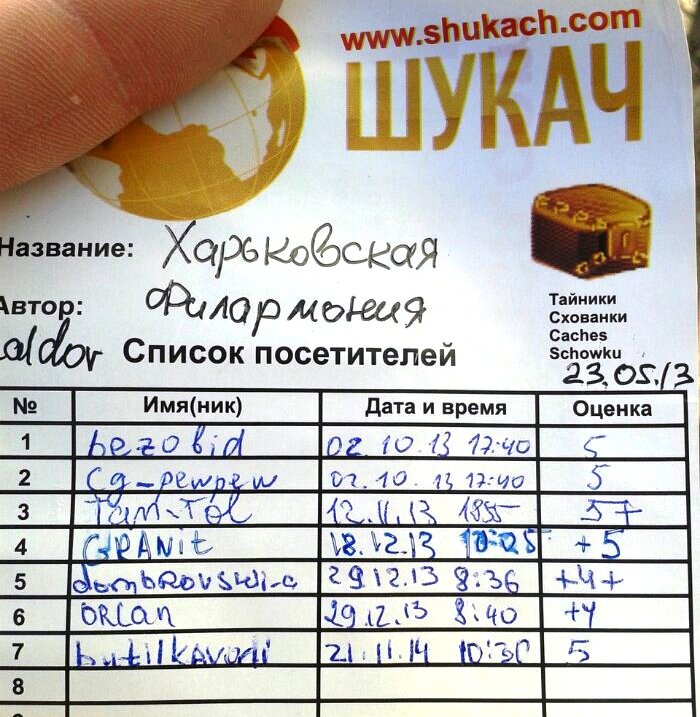 www.shukach.com
ШУКАЧ
Название: Харьковская
Автор: Филармония
aldor Список посетителей
Тайники
Схованки
Caches
Schowku
23.05.13
№ Имя(ник) Дата и время Оценка
1 bezobid 02.10.13 17:40 5
2 cg_pewpew 02.10.13 17:40 5
3 Tam-Tol 12.11.13 1855 5+
4 GRANit 18.12.13 10:25 +5
5 dombrovski-a 29.12.13 8:36 +4+
6 ORLAN 29.12.13 8:40 +4
7 butilkavodi 21.11.14 10:30 5
8